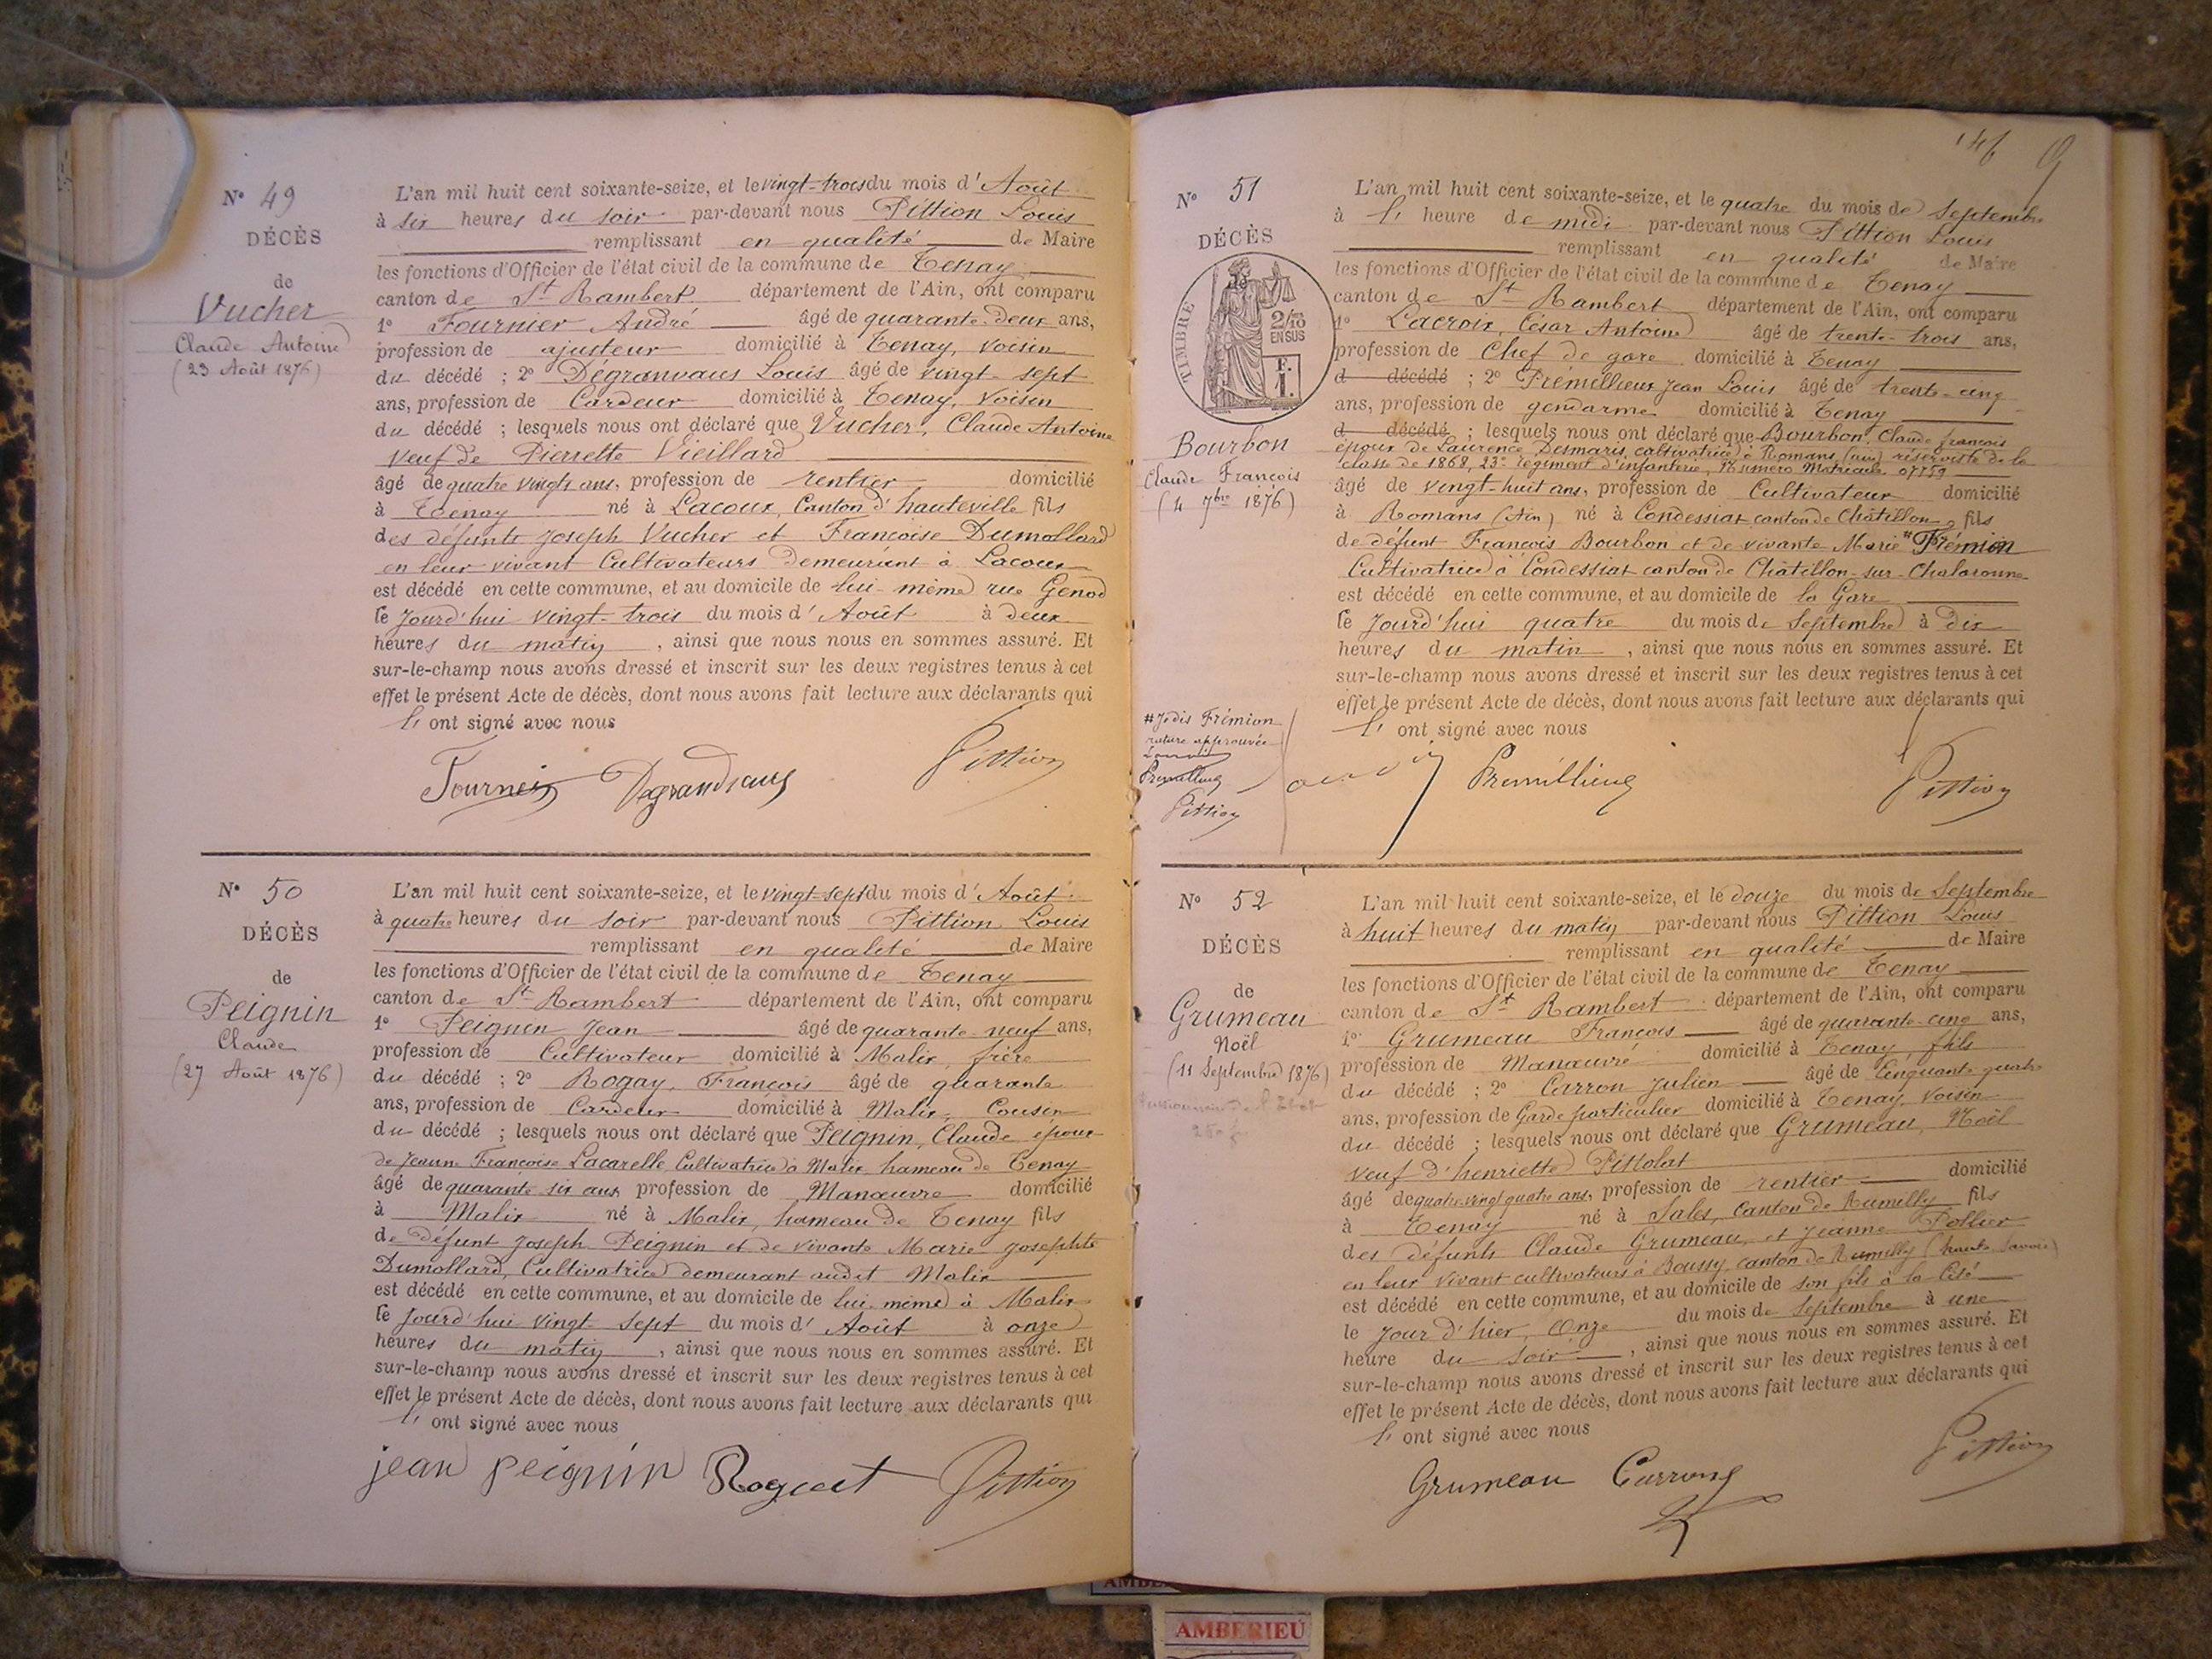 N° 49
DÉCÈS
de
Vucher
Claude Antoine
(23 Août 1876)
L'an mil huit cent soixante-seize, et le vingt-trois du mois d'Août
à six heures du soir par-devant nous Pittion Louis
remplissant en qualité de Maire
les fonctions d'Officier de l'état civil de la commune de Tenay
canton de St Rambert département de l'Ain, ont comparu
1° Fournier André âgé de quarante-deux ans,
profession de ajusteur domicilié à Tenay, voisin
du décédé ; 2° Dégranvaus Louis âgé de vingt-sept
ans, profession de Cardeur domicilié à Tenay, voisin
du décédé ; lesquels nous ont déclaré que Vucher, Claude Antoine
veuf de Pierrette Vieillard
âgé de quatre vingts ans, profession de rentier domicilié
à Tenay né à Lacoux, Canton d'hauteville fils
des défunts Joseph Vucher et Françoise Dumollard
en leur vivant Cultivateurs demeurant à Lacoux
est décédé en cette commune, et au domicile de lui-même rue Genod
le jourd'hui vingt-trois du mois d'Août à deux
heures du matin, ainsi que nous nous en sommes assuré. Et
sur-le-champ nous avons dressé et inscrit sur les deux registres tenus à cet
effet le présent Acte de décès, dont nous avons fait lecture aux déclarants qui
l'ont signé avec nous
Fournier Degrandvaus Pittion
N° 50
DÉCÈS
de
Peignin
Claude
(27 Août 1876)
L'an mil huit cent soixante-seize, et le vingt-sept du mois d'Août
à quatre heures du soir par-devant nous Pittion Louis
remplissant en qualité de Maire
les fonctions d'Officier de l'état civil de la commune de Tenay
canton de St Rambert département de l'Ain, ont comparu
1° Peignin Jean âgé de quarante-neuf ans,
profession de Cultivateur domicilié à Malix, frère
du décédé ; 2° Rogay, François âgé de quarante
ans, profession de Cardeur domicilié à Malix, Cousin
du décédé ; lesquels nous ont déclaré que Peignin, Claude époux
de Jeanne Françoise Lacarelle, Cultivatrice à Malix, hameau de Tenay
âgé de quarante six ans profession de Manœuvre domicilié
à Malix né à Malix, hameau de Tenay fils
de défunt Joseph Peignin et de vivante Marie Josephte
Dumollard, Cultivatrice demeurant audit Malix
est décédé en cette commune, et au domicile de lui-même à Malix
le jourd'hui vingt sept du mois d'Août à onze
heures du matin, ainsi que nous nous en sommes assuré. Et
sur-le-champ nous avons dressé et inscrit sur les deux registres tenus à cet
effet le présent Acte de décès, dont nous avons fait lecture aux déclarants qui
l'ont signé avec nous
jean peignin Pittion
146
N° 51
DÉCÈS
TIMBRE
2/10
EN SUS
F.
1.
Bourbon
Claude François
(4 7bre 1876)
L'an mil huit cent soixante-seize, et le quatre du mois de Septembre
à l'heure de midi par-devant nous Pittion Louis
remplissant en qualité de Maire
les fonctions d'Officier de l'état civil de la commune de Tenay
canton de St Rambert département de l'Ain, ont comparu
1° Lacroix, César Antoine âgé de trente-trois ans,
profession de Chef de gare domicilié à Tenay
d décédé ; 2° Prémillieux Jean Louis âgé de trente-cinq
ans, profession de gendarme domicilié à Tenay
d décédé ; lesquels nous ont déclaré que Bourbon, Claude françois
époux de Laurence Desmaris, cultivatrice à Romans, (ain) réserviste de la
classe de 1868, 23e régiment d'infanterie, Numéro Matricule 07759
âgé de vingt-huit ans, profession de Cultivateur domicilié
à Romans (Ain) né à Condessiat canton de Châtillon, fils
de défunt François Bourbon et de vivante Marie # Frémion
Cultivatrice à Condessiat canton de Châtillon-sur-Chalaronne
est décédé en cette commune, et au domicile de la Gare
le jourd'hui quatre du mois de Septembre à dix
heures du matin, ainsi que nous nous en sommes assuré. Et
sur-le-champ nous avons dressé et inscrit sur les deux registres tenus à cet
effet le présent Acte de décès, dont nous avons fait lecture aux déclarants qui
l'ont signé avec nous
# Je dis Frémion
rature approuvée
Premillieux
Pittion
Premillieux Pittion
N° 52
DÉCÈS
de
Grumeau
Noël
(11 Septembre 1876)
L'an mil huit cent soixante-seize, et le douze du mois de Septembre
à huit heures du matin par-devant nous Pittion Louis
remplissant en qualité de Maire
les fonctions d'Officier de l'état civil de la commune de Tenay
canton de St Rambert département de l'Ain, ont comparu
1° Grumeau François âgé de quarante-cinq ans,
profession de Manœuvré domicilié à Tenay fils
du décédé ; 2° Carron Julien âgé de Cinquante quatre
ans, profession de Garde particulier domicilié à Tenay, voisin
du décédé ; lesquels nous ont déclaré que Grumeau, Noël
veuf d'henriette Pittolat
âgé de quatre vingt quatre ans, profession de rentier domicilié
à Tenay né à Sales, canton de Rumilly fils
des défunts Claude Grumeau, et Jeanne Pollier
en leur vivant cultivateurs à Boussy canton de Rumilly (haute Savoie)
est décédé en cette commune, et au domicile de son fils à la Cité
le jour d'hier, Onze du mois de Septembre à une
heure du soir, ainsi que nous nous en sommes assuré. Et
sur-le-champ nous avons dressé et inscrit sur les deux registres tenus à cet
effet le présent Acte de décès, dont nous avons fait lecture aux déclarants qui
l'ont signé avec nous
Grumeau Carron Pittion
AMBERIEU